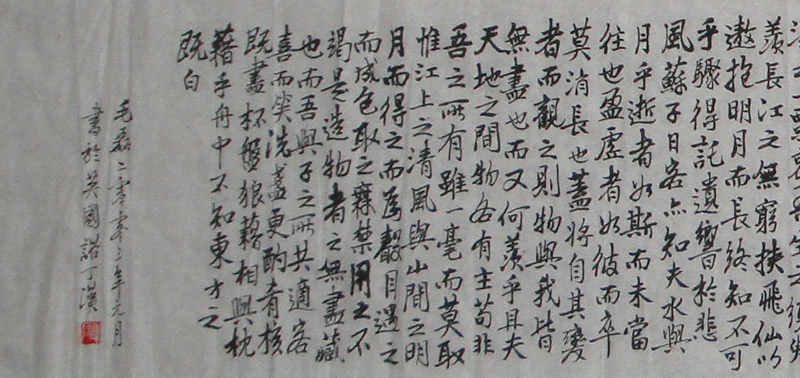 羨長江之無窮挾飛仙以
遨抱明月而長終知不可
乎驟得託遺響於悲
風蘇子曰客亦知夫水與
月乎逝者如斯而未當
往也盈虛者如彼而卒
莫消長也蓋將自其變
者而觀之則物與我皆
無盡也而又何羨乎且夫
天地之間物各有主苟非
吾之所有雖一毫而莫取
惟江上之清風與山間之明
月而得之而為聲目遇之
而成色取之無禁用之不
竭是造物者之無盡藏
也而吾與子之所共適客
喜而笑洗盞更酌肴核
既盡杯盤狼藉相與枕
藉乎舟中不知東方之
既白
毛磊二零零三年元月
書於英國諾丁漢